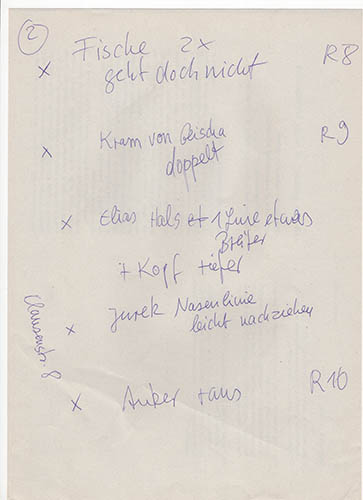 2
Fische 2x R8
x geht doch nicht
x Kram von Geischa R9
doppelt
x Elias Hals et 1 Linie etwas
Breiter
+ Kopf tiefer
x Jurek Nasenlinie
leicht nachziehen
Clausenstr. 8
x Anker raus R10